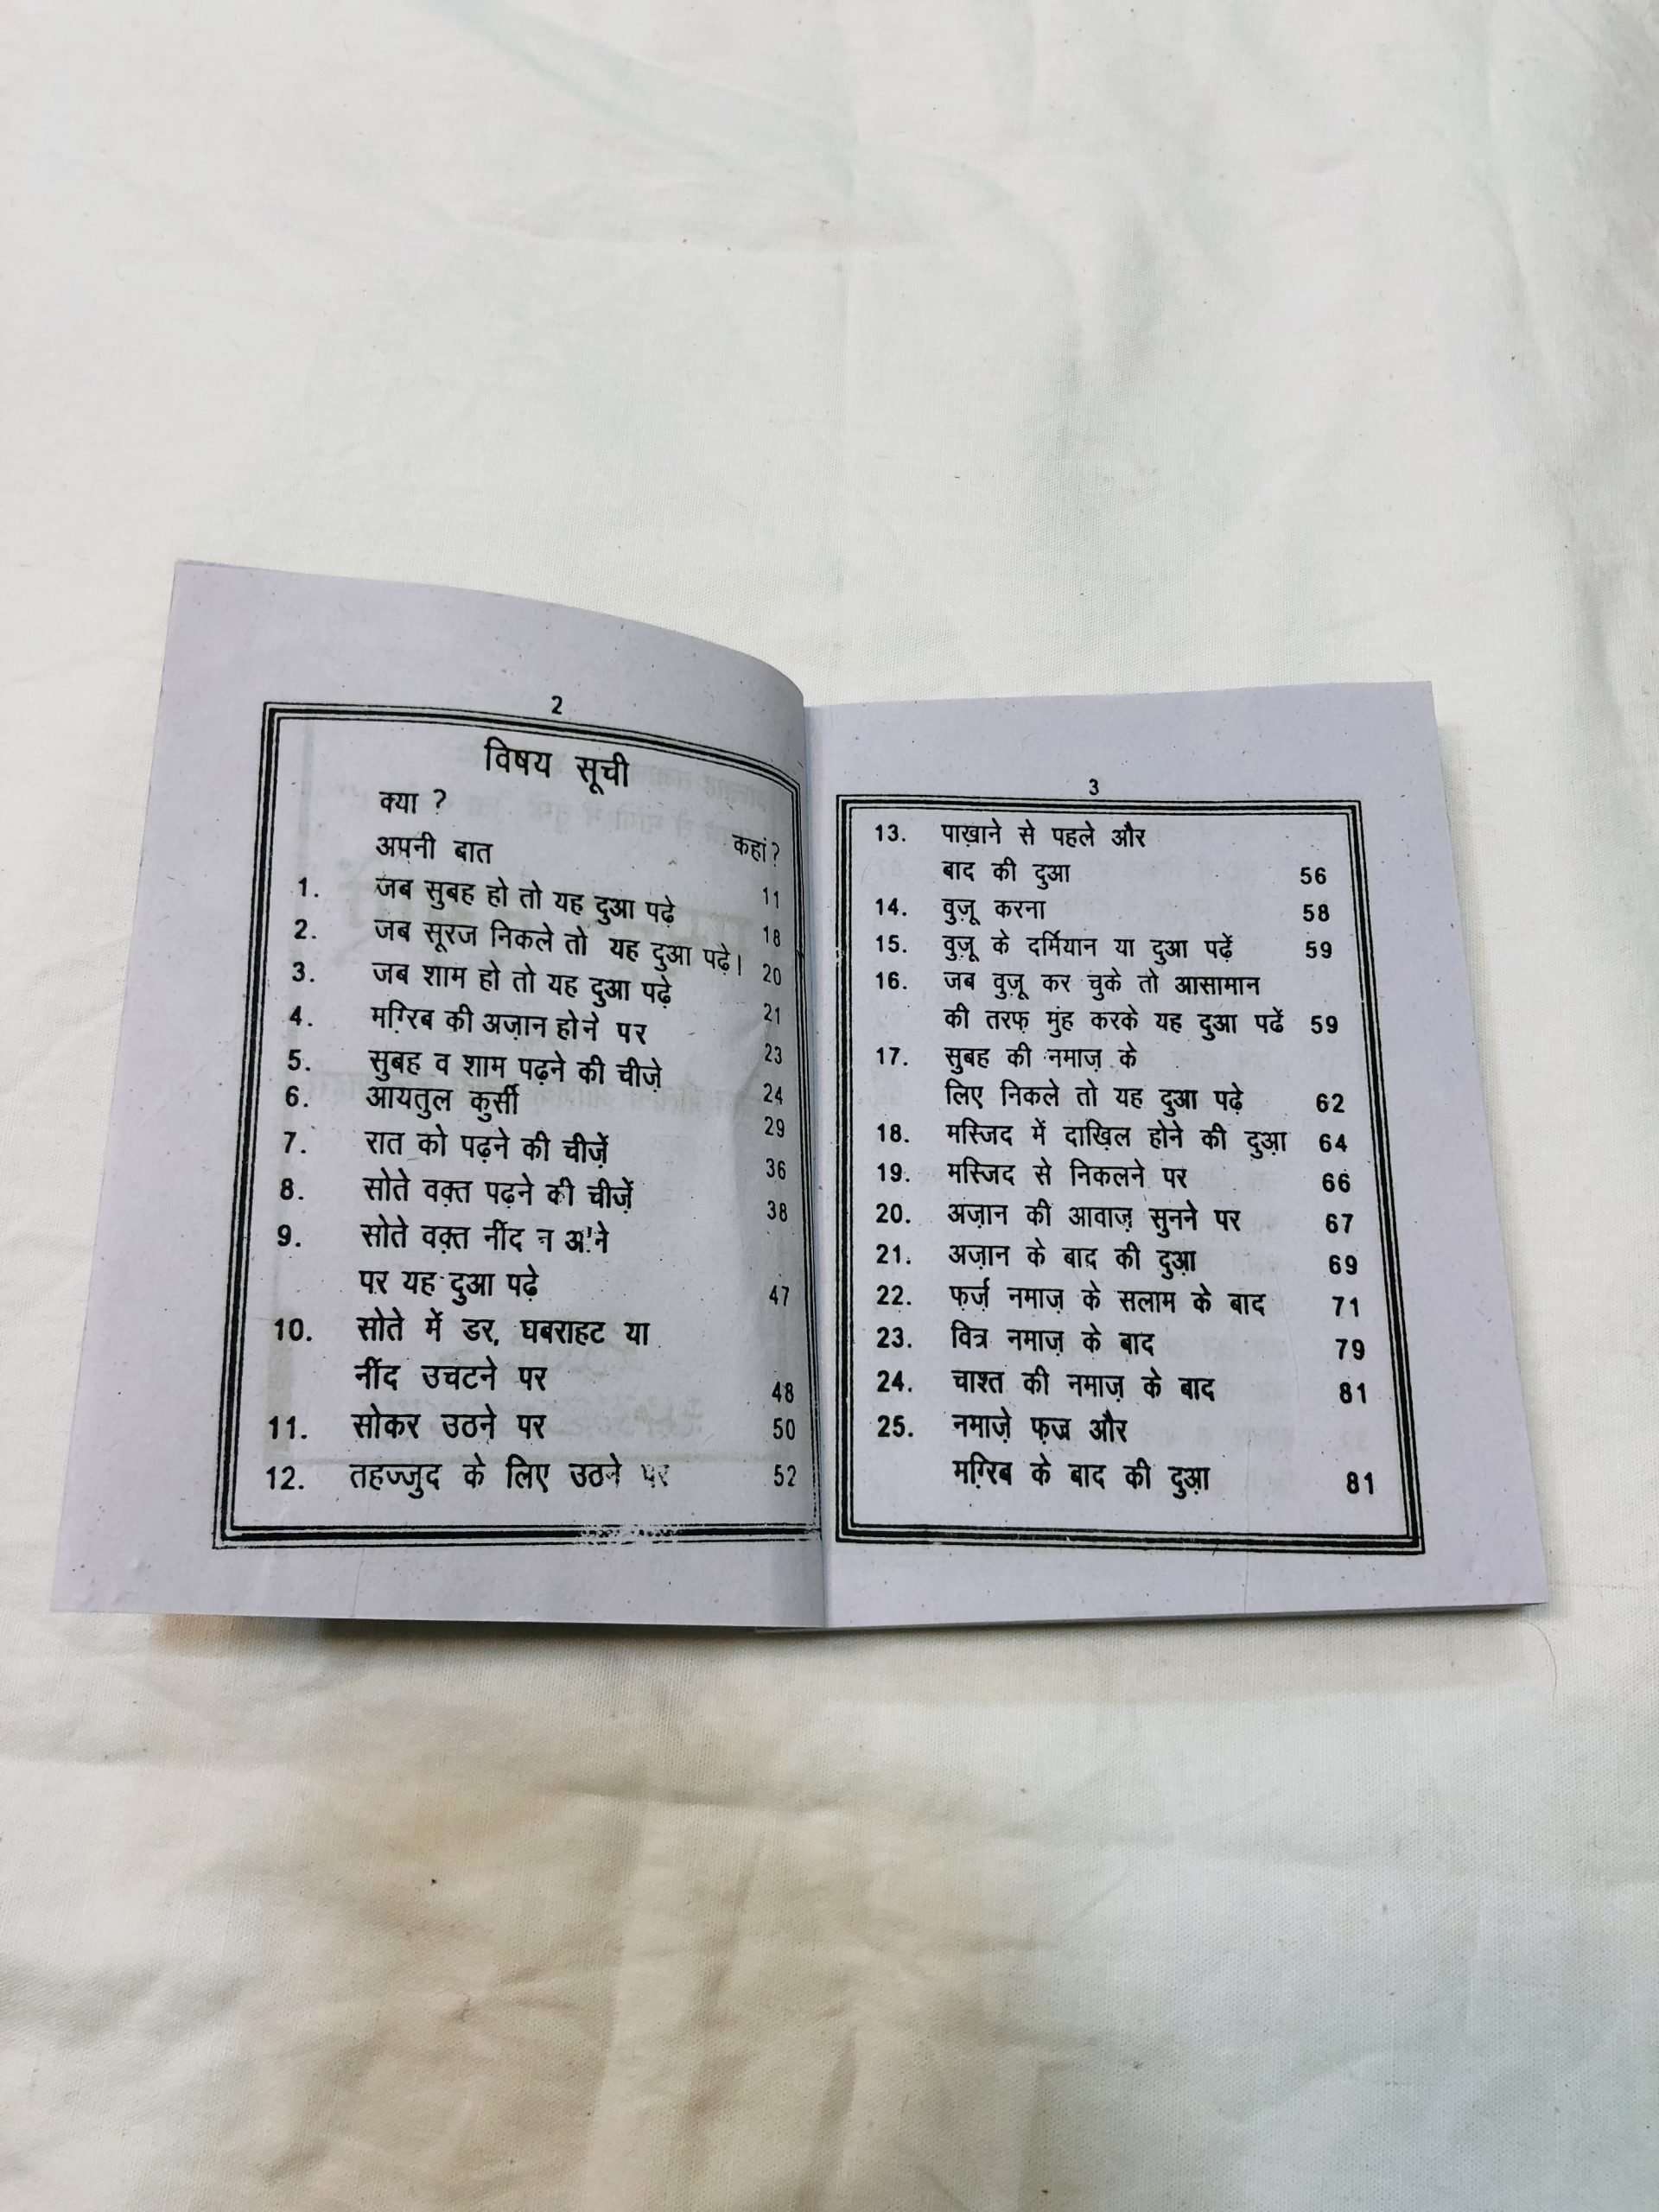 2
विषय सूची
क्या ?
कहां ?
अपनी बात 11
1. जब सुबह हो तो यह दुआ पढ़े 18
2. जब सूरज निकले तो यह दुआ पढ़े। 20
3. जब शाम हो तो यह दुआ पढ़े 21
4. मग़्रिब की अज़ान होने पर 23
5. सुबह व शाम पढ़ने की चीज़े 24
6. आयतुल कुर्सी 29
7. रात को पढ़ने की चीज़ें 36
8. सोते वक़्त पढ़ने की चीज़ें 38
9. सोते वक़्त नींद न आने
पर यह दुआ पढ़े 47
10. सोते में डर, घबराहट या
नींद उचटने पर 48
11. सोकर उठने पर 50
12. तहज्जुद के लिए उठने पर 52
3
13. पाख़ाने से पहले और
बाद की दुआ 56
14. वुज़ू करना 58
15. वुज़ू के दर्मियान या दुआ पढ़ें 59
16. जब वुज़ू कर चुके तो आसामान
की तरफ़ मुंह करके यह दुआ पढें 59
17. सुबह की नमाज़ के
लिए निकले तो यह दुआ पढ़े 62
18. मस्जिद में दाख़िल होने की दुआ़ 64
19. मस्जिद से निकलने पर 66
20. अज़ान की आवाज़ सुनने पर 67
21. अज़ान के बाद की दुआ़ 69
22. फ़र्ज़ नमाज़ के सलाम के बाद 71
23. वित्र नमाज़ के बाद 79
24. चाश्त की नमाज़ के बाद 81
25. नमाज़े फ़ज्र और
मग़्रिब के बाद की दुआ़ 81